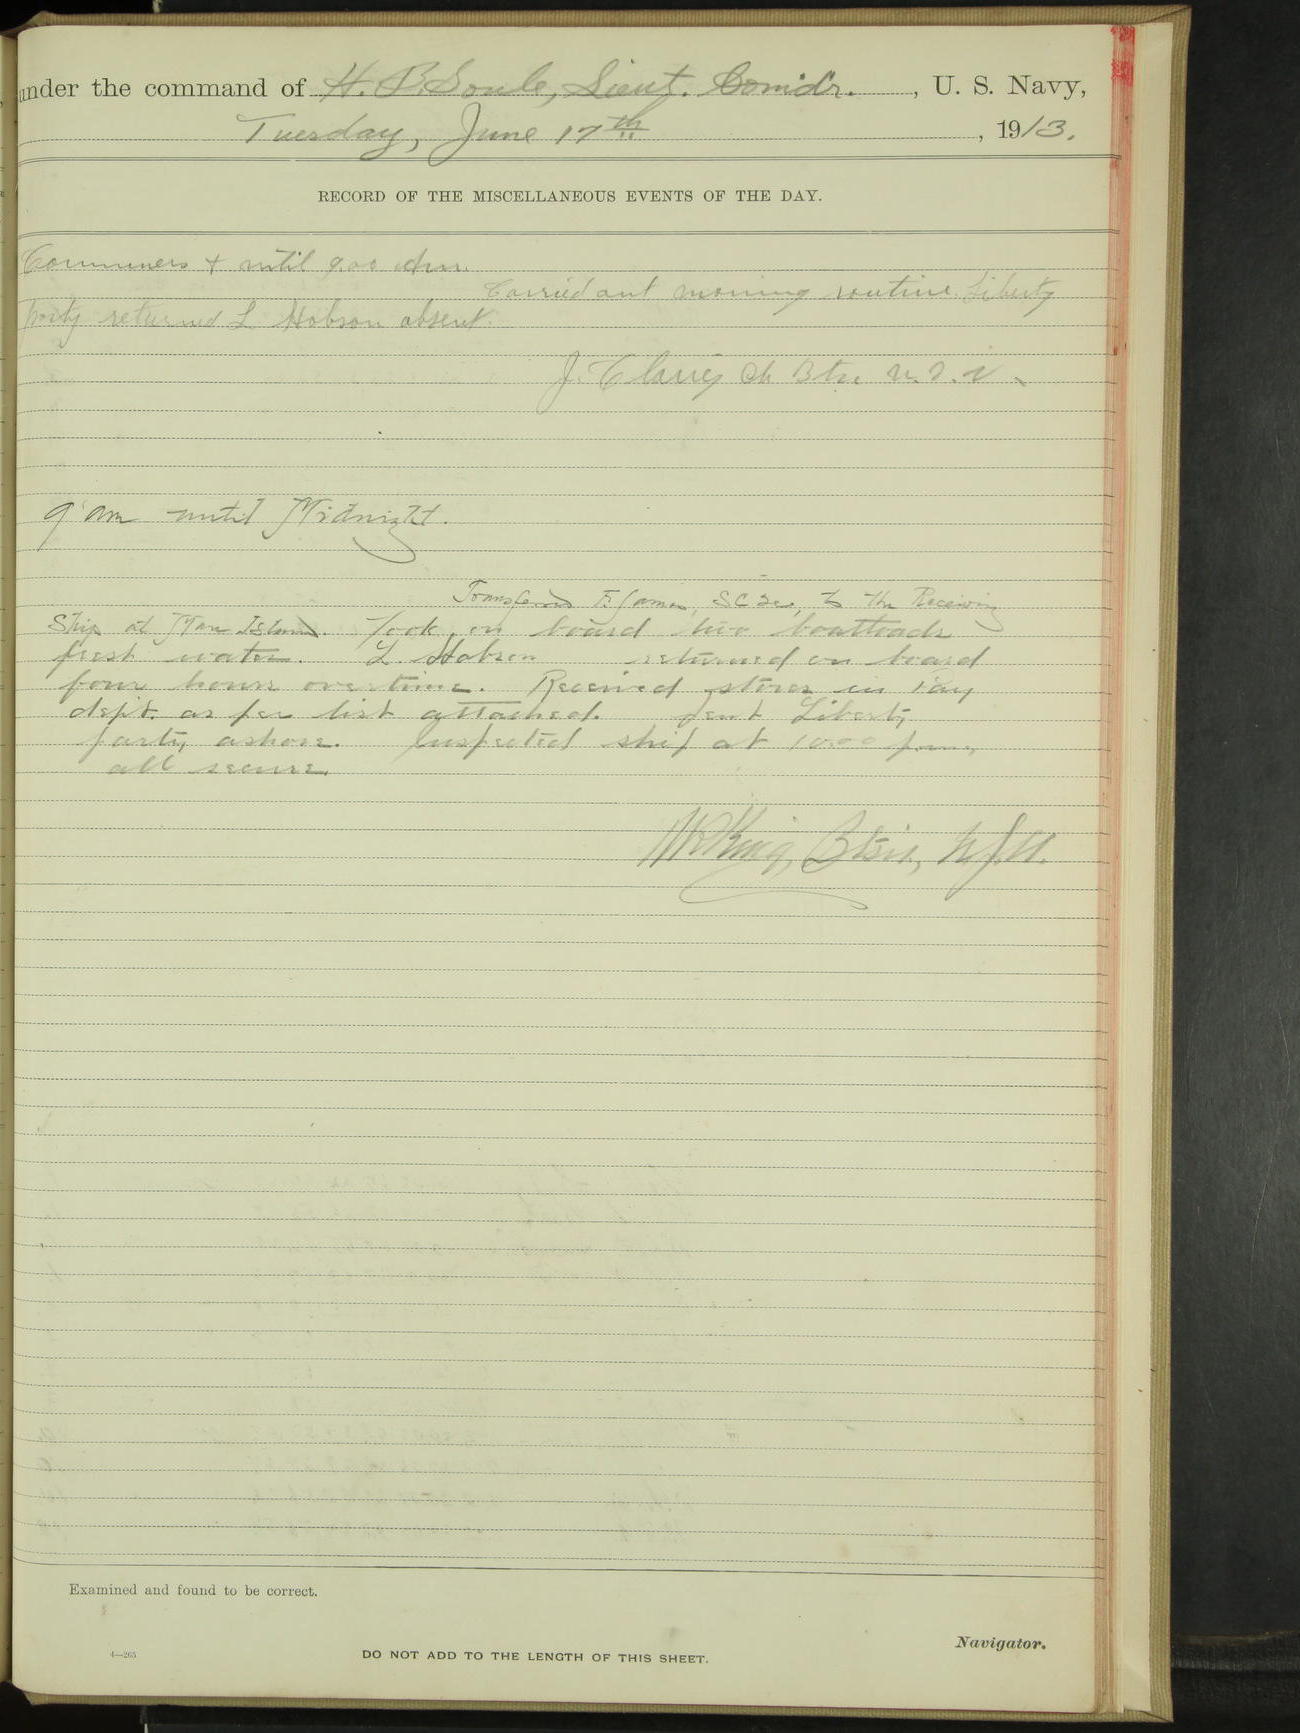 under the command of H. P. Soule, Lieut. Comdr., U. S. Navy,
Tuesday, June 17th, 1913.
RECORD OF THE MISCELLANEOUS EVENTS OF THE DAY.
Commences & until 9.00 a.m.
Carried out morning routine. Liberty
party returned L Hobson absent.
J. Clancy Ch Btn U.S.N.
9 am until Midnight.
Transferred F. James, SC2c, to the Receiving
Ship at Mare Island. Took on board two boatloads
fresh water. L. Hobson returned on board
four hours overtime. Received stores in Pay
dept. as per list attached. Sent Liberty
party ashore. Inspected ship at 10.00 p.m.,
all secure.
King, Btsn, U.S.N.
Examined and found to be correct.
Navigator.
4—265
DO NOT ADD TO THE LENGTH OF THIS SHEET.